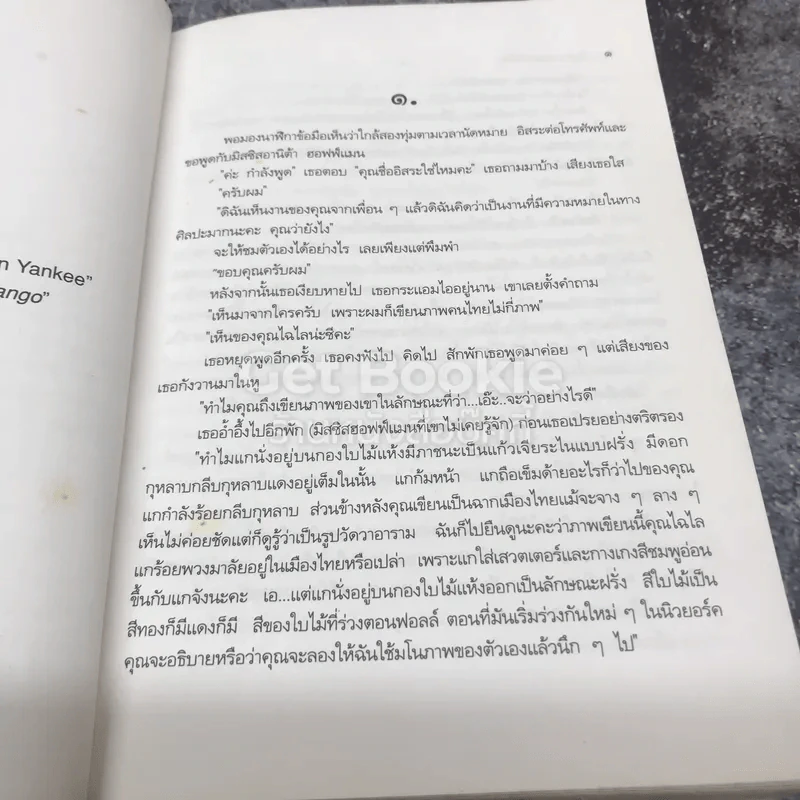 n Yankee"
ango"
๑
๑.
พอมองนาฬิกาข้อมือเห็นว่าใกล้สองทุ่มตามเวลานัดหมาย อิสระต่อโทรศัพท์และ
ขอพูดกับมิสซิสอานิต้า ฮอฟฟ์แมน
"ค่ะ กำลังพูด" เธอตอบ "คุณชื่ออิสระใช่ไหมคะ" เธอถามมาบ้าง เสียงเธอใส
"ครับผม"
"ดิฉันเห็นงานของคุณจากเพื่อน ๆ แล้วดิฉันคิดว่าเป็นงานที่มีความหมายในทาง
ศิลปะมากนะคะ คุณว่ายังไง"
จะให้ชมตัวเองได้อย่างไร เลยเพียงแต่พึมพำ
"ขอบคุณครับผม"
หลังจากนั้นเธอเงียบหายไป เธอกระแอมไออยู่นาน เขาเลยตั้งคำถาม
"เห็นมาจากใครครับ เพราะผมก็เขียนภาพคนไทยไม่กี่ภาพ"
"เห็นของคุณไฉไลน่ะซีคะ"
เธอหยุดพูดอีกครั้ง เธอคงฟังไป คิดไป สักพักเธอพูดมาค่อย ๆ แต่เสียงของ
เธอกังวานมาในหู
"ทำไมคุณถึงเขียนภาพของเขาในลักษณะที่ว่า...เอ๊ะ..จะว่าอย่างไรดี"
เธออ้ำอึ้งไปอีกพัก (มิสซิสฮอฟฟ์แมนที่เขาไม่เคยรู้จัก) ก่อนเธอเปรยอย่างตริตรอง
"ทำไมแกนั่งอยู่บนกองใบไม้แห้งมีภาชนะเป็นแก้วเจียระไนแบบฝรั่ง มีดอก
กุหลาบกลีบกุหลาบแดงอยู่เต็มในนั้น แกก้มหน้า แกถือเข็มด้ายอะไรก็ว่าไปของคุณ
แกกำลังร้อยกลีบกุหลาบ ส่วนข้างหลังคุณเขียนเป็นฉากเมืองไทยแม้จะจาง ๆ ลาง ๆ
เห็นไม่ค่อยชัดแต่ก็ดูรู้ว่าเป็นรูปวัดวาอาราม ฉันก็ไปยืนดูนะคะว่าภาพเขียนนี้คุณไฉไล
แกร้อยพวงมาลัยอยู่ในเมืองไทยหรือเปล่า เพราะแกใส่เสวตเตอร์และกางเกงสีชมพูอ่อน
ขึ้นกับแกจังนะคะ เอ...แต่แกนั่งอยู่บนกองใบไม้แห้งออกเป็นลักษณะฝรั่ง สีใบไม้เป็น
สีทองก็มีแดงก็มี สีของใบไม้ที่ร่วงตอนฟอลล์ ตอนที่มันเริ่มร่วงกันใหม่ ๆ ในนิวยอร์ค
คุณจะอธิบายหรือว่าคุณจะลองให้ฉันใช้มโนภาพของตัวเองแล้วนึก ๆ ไป"
Get Bookie